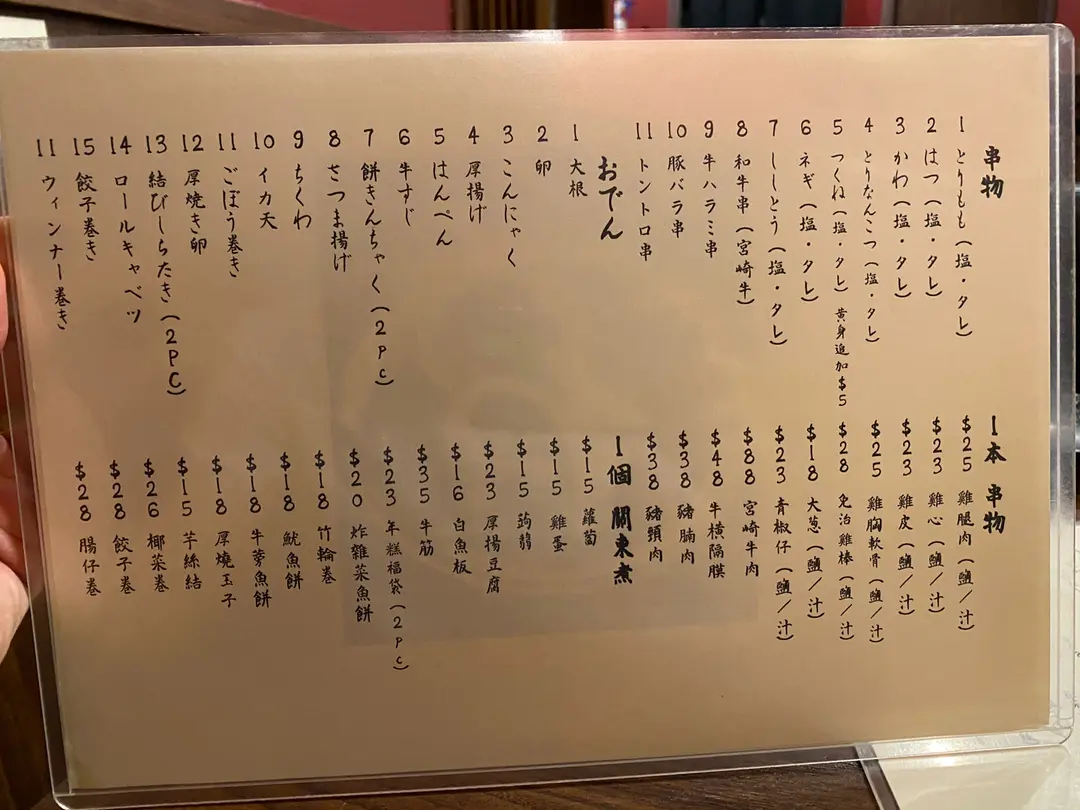 串物 1本 串物
1 とりもも(塩・タレ) $25 雞腿肉(鹽/汁)
2 はつ(塩・タレ) $23 雞心(鹽/汁)
3 かわ(塩・タレ) $23 雞皮(鹽/汁)
4 とりなんこつ(塩・タレ) $25 雞胸軟骨(鹽/汁)
5 つくね(塩・タレ) 黄身追加$5 $28 免治雞棒(鹽/汁)
6 ネギ(塩・タレ) $18 大葱(鹽/汁)
7 ししとう(塩・タレ) $23 青椒仔(鹽/汁)
8 和牛串(宮崎牛) $88 宮崎牛肉
9 牛ハラミ串 $48 牛横隔膜
10 豚バラ串 $38 豬腩肉
11 トントロ串 $38 豬頸肉
おでん 1個 關東煮
1 大根 $15 蘿蔔
2 卵 $15 雞蛋
3 こんにゃく $15 蒟蒻
4 厚揚げ $23 厚揚豆腐
5 はんぺん $16 白魚板
6 牛すじ $35 牛筋
7 餅きんちゃく(2Pc) $23 年糕福袋(2Pc)
8 さつま揚げ $20 炸雜菜魚餅
9 ちくわ $18 竹輪巻
10 イカ天 $18 魷魚餅
11 ごぼう巻き $18 牛蒡魚餅
12 厚焼き卵 $18 厚燒玉子
13 結びしらたき(2PC) $15 芋絲結
14 ロールキャベツ $26 椰菜巻
15 餃子巻き $28 餃子巻
11 ウィンナー巻き $28 腸仔巻